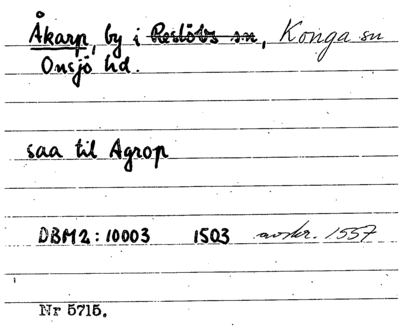 Åkarp, by i Reslövs sn, Konga sn
Onsjö hd.
saa til Agrop
DBM2:10003 1503 avskr. 1557
Nr 5715.